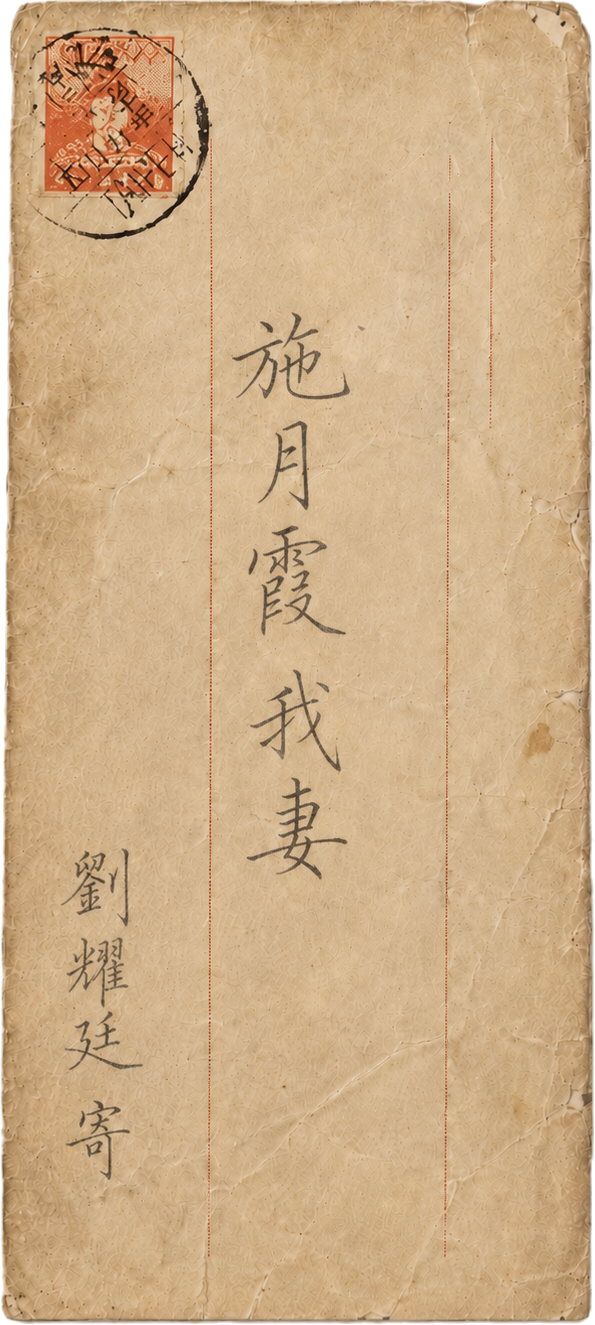 施月霞我妻
劉耀廷寄